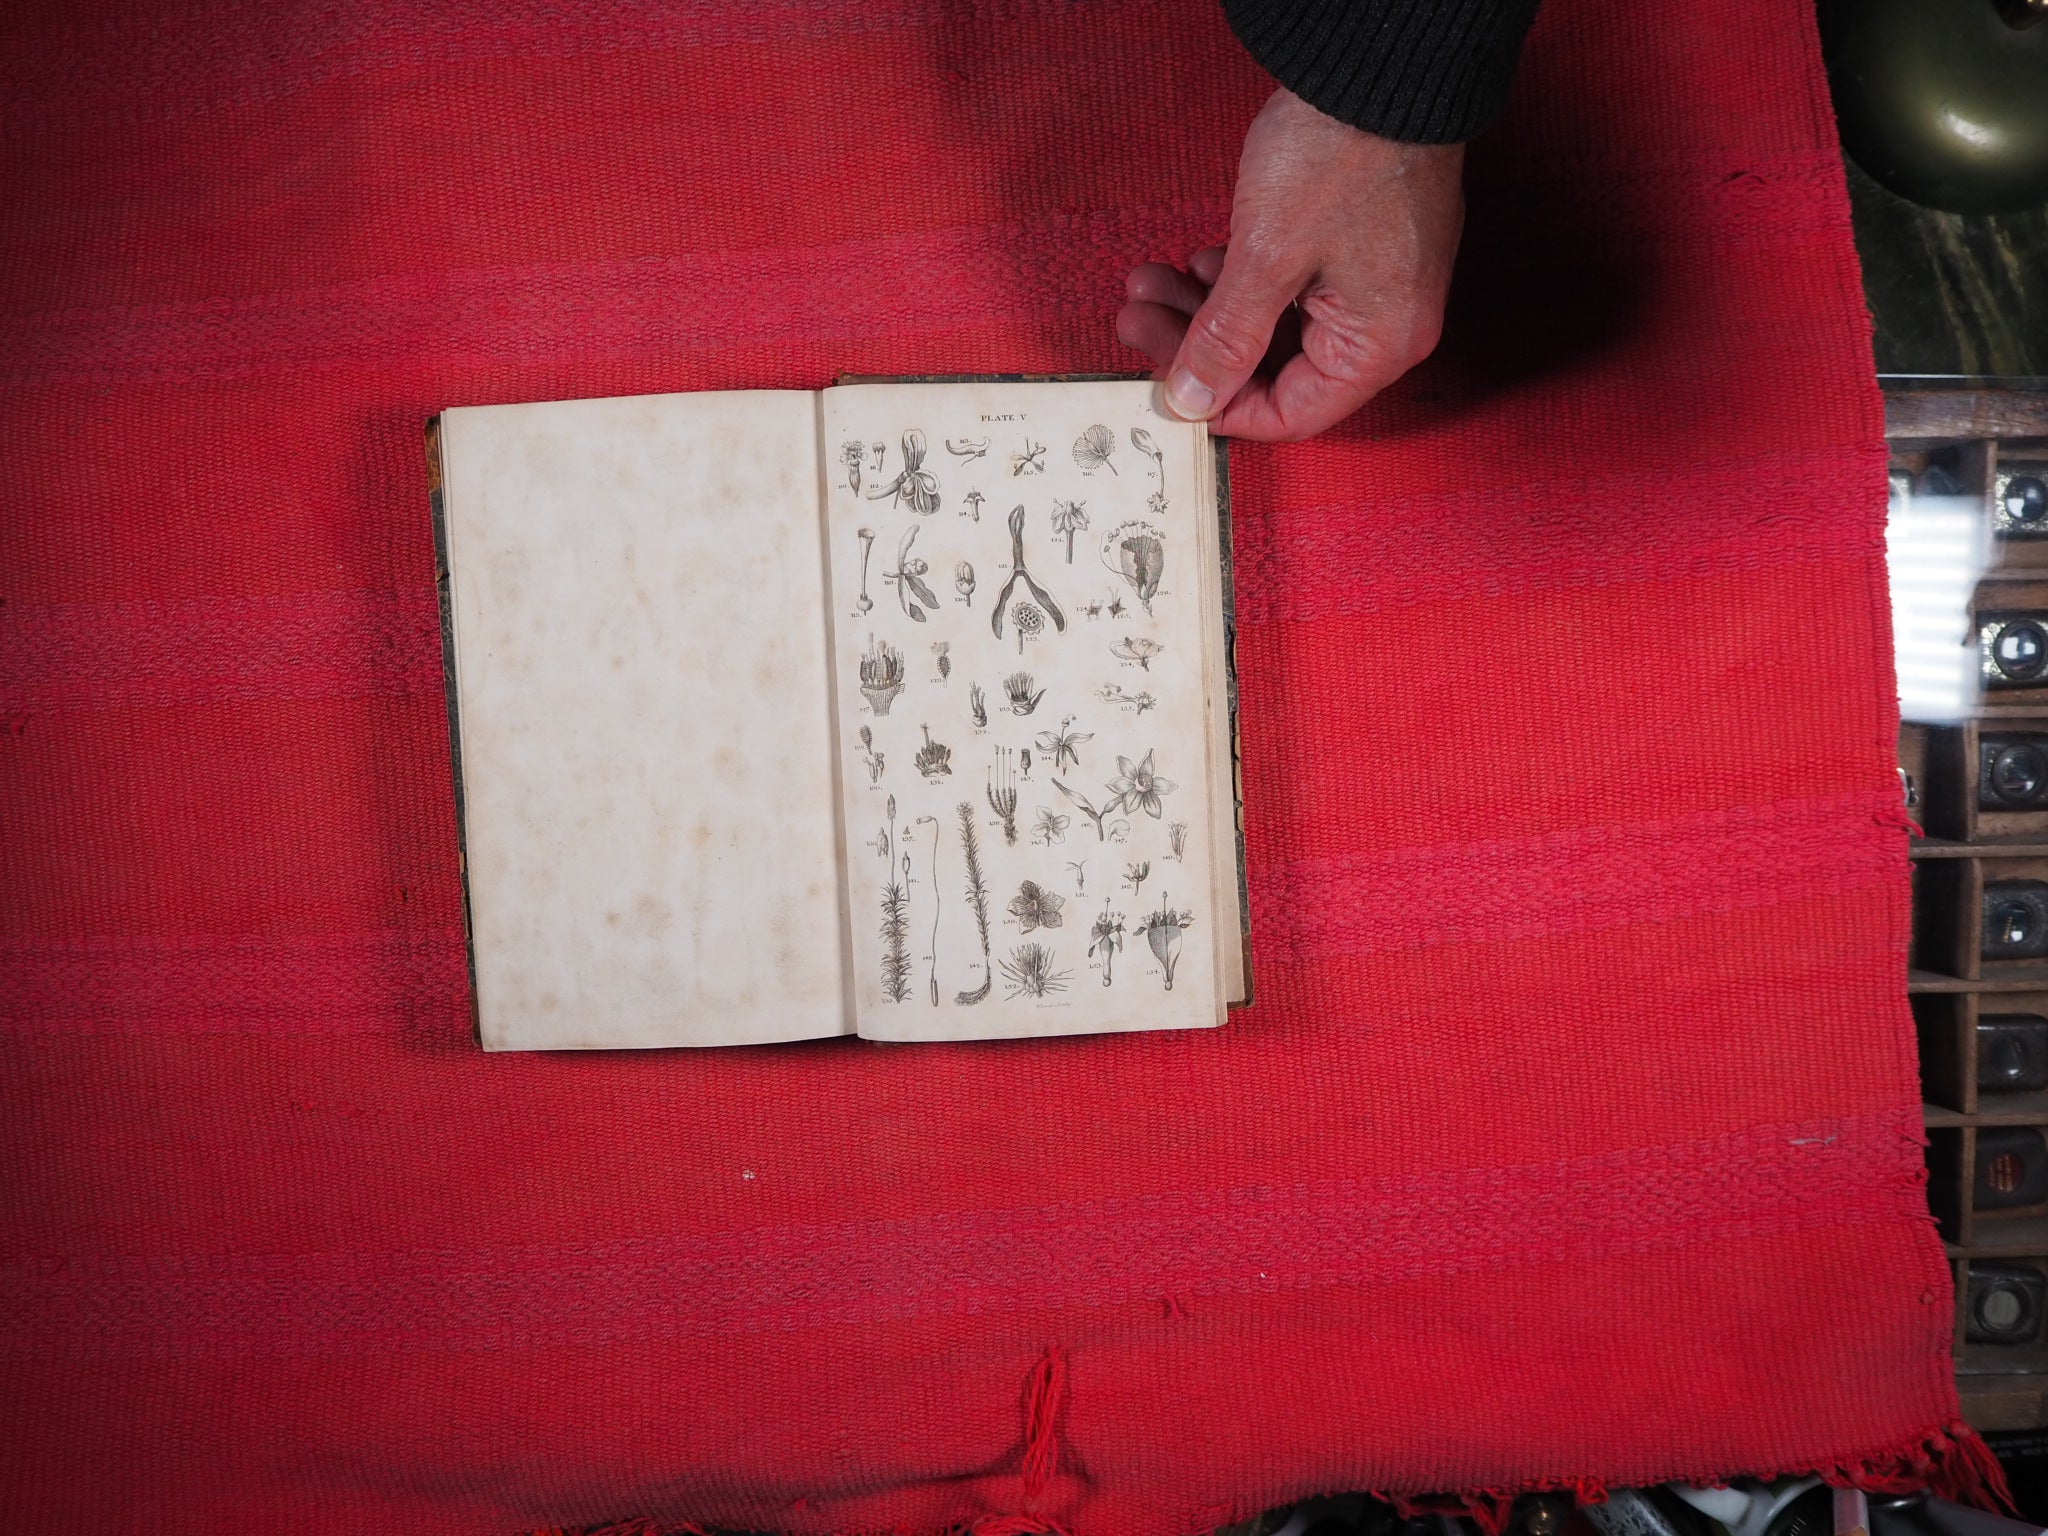 PLATE V
110.
111.
112.
113.
114.
115.
116.
117.
118.
119.
120.
121.
122.
123.
124.
125.
126.
127.
129.
130.
131.
132.
133.
134.
135.
136.
137.
138.
139.
140.
141.
142.
143.
144.
145.
146.
147.
148.
149.
150.
151.
152.
153.
154.